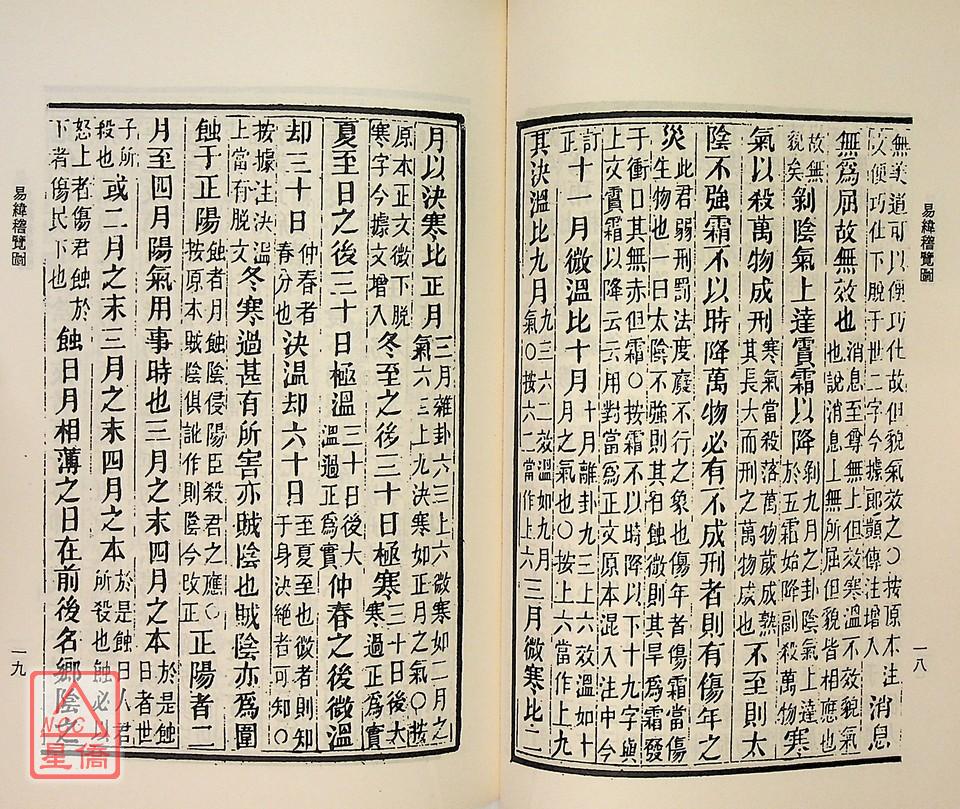 易緯稽覽圖
一八
無美道可以便巧仕故但貌氣效之〇按原本注
文便巧仕下脫于世二字今據郎顗傳注增入
消息
無爲屈故無效也
消息至尊無上但效寒溫不效貌氣
也說消息上無所屈但貌皆相應也
故無
貌矣
剝陰氣上達霣霜以降
剝九月之卦陰氣上達
於五霜始降副殺萬物
寒
氣以殺萬物成刑
寒氣當殺落萬物歲成熟
其長大而刑之萬物成也
不至則太
陰不強霜不以時降萬物必有不成刑者則有傷年之
災
此君弱刑罰法度廢不行之象也傷年者傷霜當傷
生物也一日太陰不強則其自蝕微則其旱爲霜發
于衝口其無赤但霜〇按霜不以時降以下十九字與
上文霣霜以降云云用對當爲正文原本混入注中今
訂
正
十一月微溫比十月
十月離卦九三上六效溫如十
月之氣也〇按上六當作上九
其決溫比九月
九三六二效溫如九月
氣〇按六二當作上六
三月微寒比二
月以決寒比正月
三月雜卦六三上六微寒如二月之
氣六三上九決寒如正月之氣〇按
原本正文微下脫
寒字今據文增入
冬至之後三十日極寒
三十日後大
寒過正爲實
夏至日之後三十日極溫
三十日後大
溫過正爲實
仲春之後微溫
却三十日
仲春者
春分也
決溫却六十日
至夏至也微者則知
于身決絕者可知〇
按據注決溫
上當有脫文
冬寒過甚有所害亦賊陰也賊陰亦爲圍
蝕于正陽
蝕者月蝕陰侵陽臣殺君之應〇
按原本賊陰俱訛作則陰今改正
正陽者二
月至四月陽氣用事時也三月之末四月之本
於是蝕
日者世
子所
殺也
或二月之末三月之末四月之本
於是蝕日人君
所殺也蝕必以
怒上者傷君蝕於
下者傷民下也
蝕日月相薄之日在前後名鄉陰之
易緯稽覽圖
一九
NCC
星僑